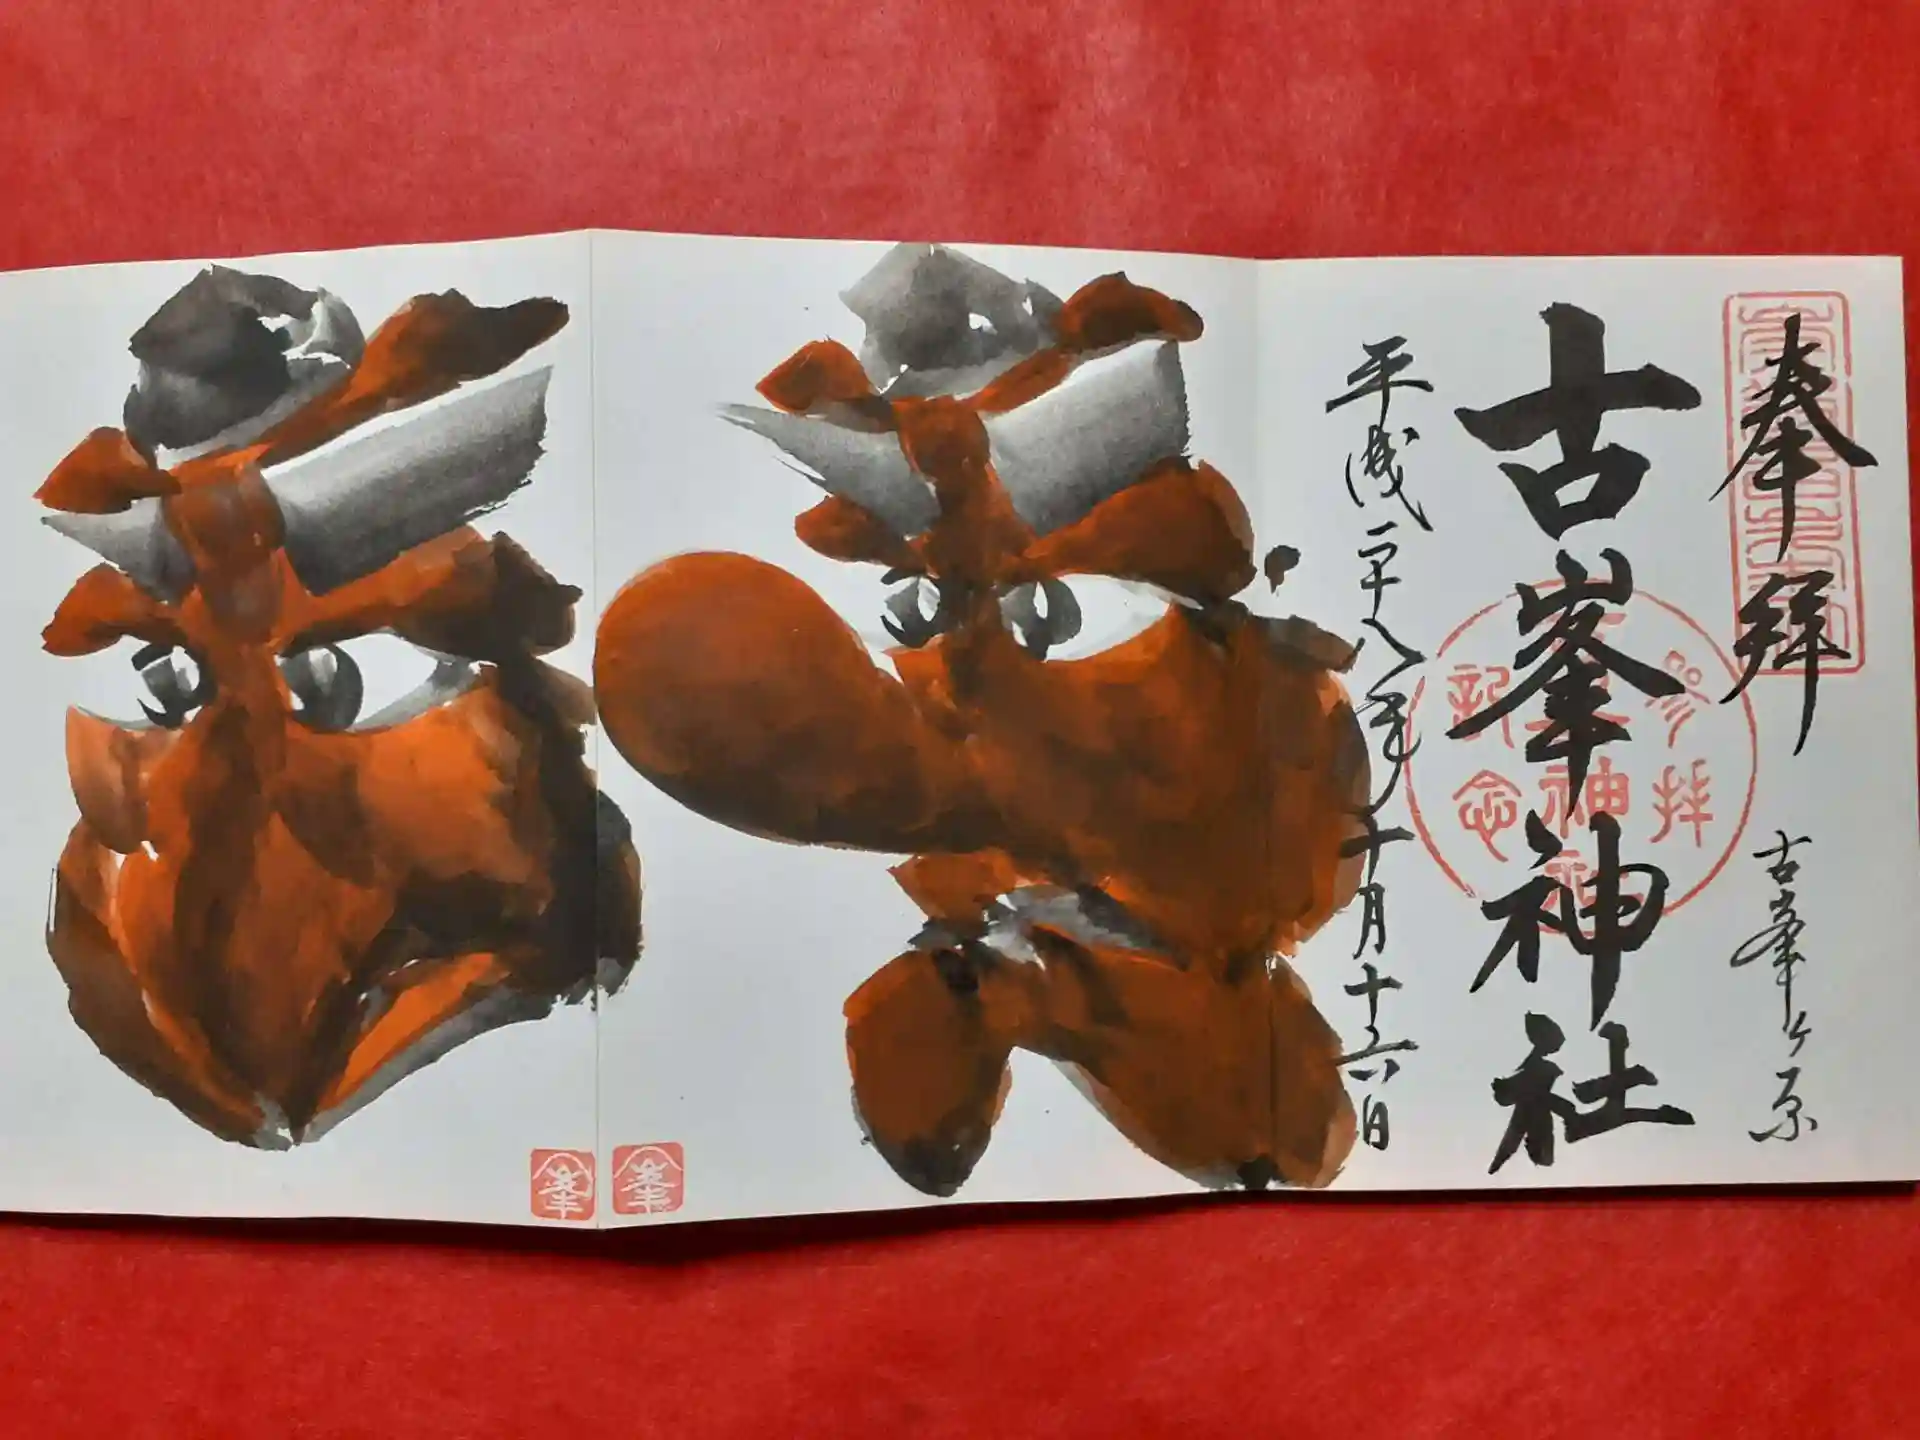 奉拝
古峯ヶ原
古峯神社
参拝
古峯神社
記念
平成二十八年十月十六日
峯
峯